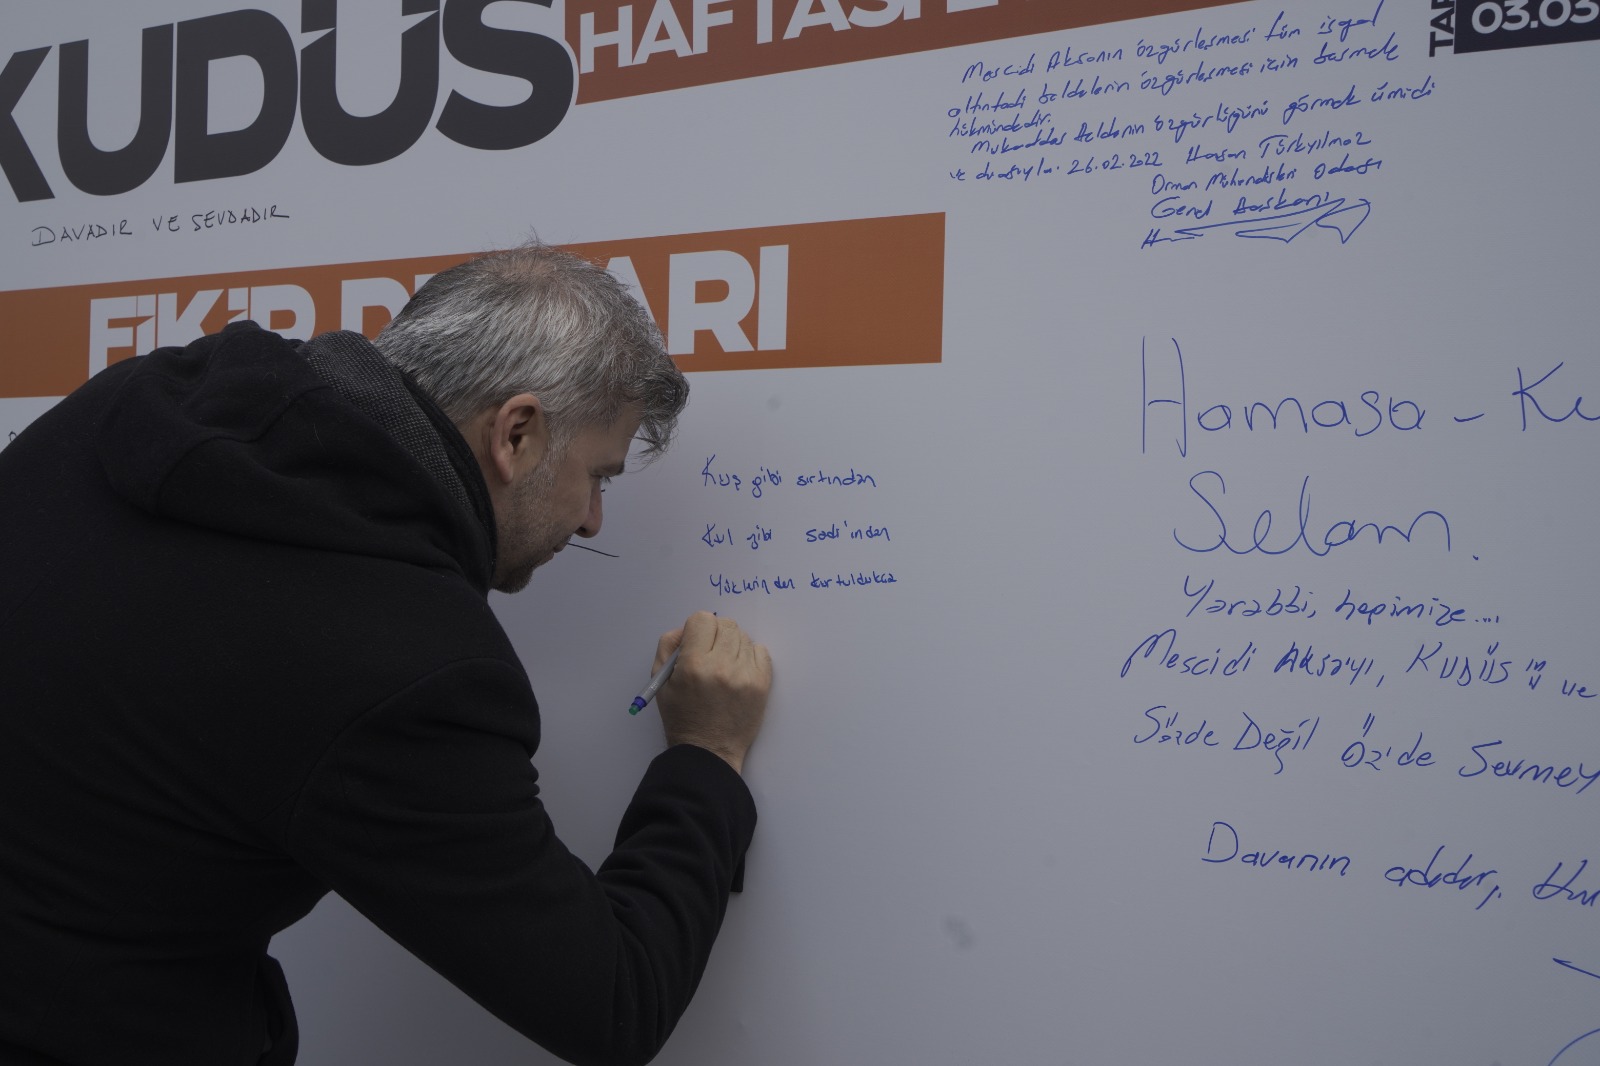 KUDÜS
HAFTASI
DAVADIR VE SEVDADIR
FİKİR D ARI
TAR
03.03
Mescidi Aksanın özgürleşmesi tüm işgal
altındaki beldelerin özgürleşmesi için besmele
hükmündedir.
Mukaddes beldenin özgürlüğünü görmek ümidi
ve duasıyla. 26.02.2022 Hasan Türkyılmaz
Orman Mühendisleri Odası
Genel Başkanı
Kuş gibi sırtından
Kul gibi sadr'ından
Yüklerinden kurtuldukça
Hamasa - Ku
Selam.
Yarabbi, hepimize...
Mescidi Aksa'yı, KUDÜS'ü ve
Sözde Değil Öz'de Sevmey
Davanın adıdır,